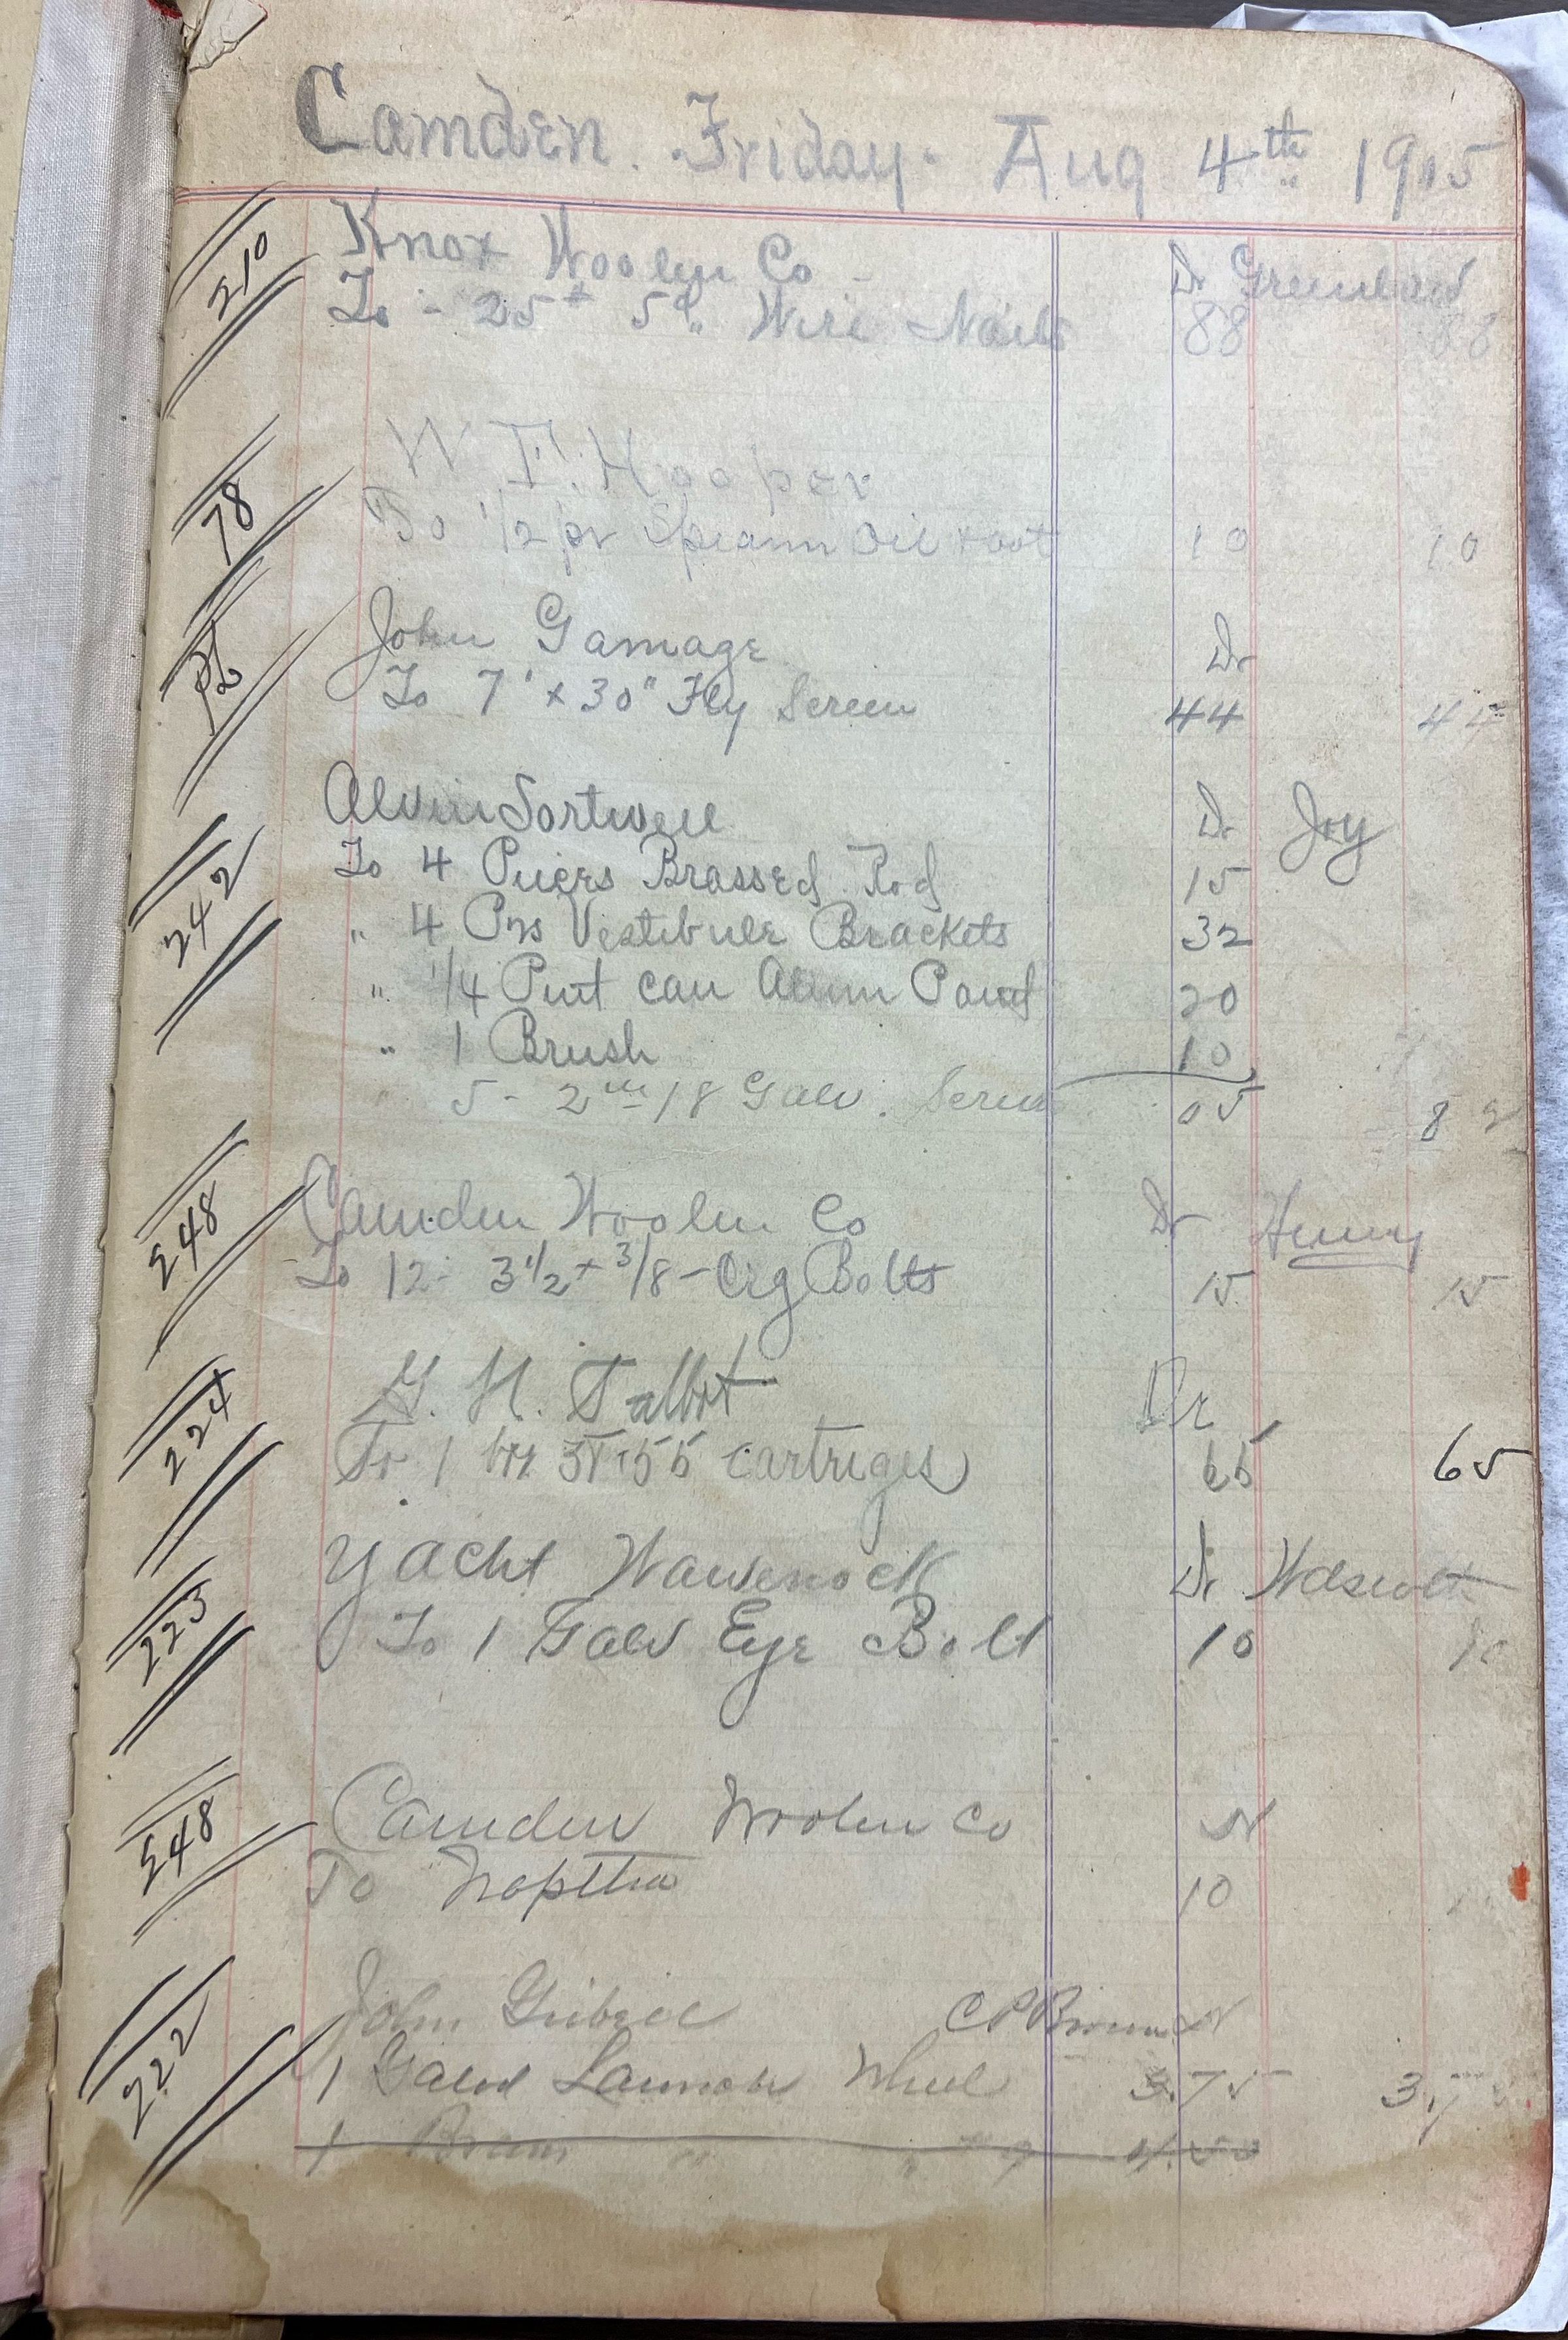 Camden. Friday. Aug 4th 1905
210 Knox Woolen Co Dr Greenlaw
To - 25# 5d Wire Nails 88 88
W. F. Hooper
78 To 1/2 pt Oil 10 10
John Gamage Dr
pd To 7' x 30" Fly Screen 44 44
Alvin Sortwell Dr Joy
To 4 Pieces Brassed Rod 15
242 " 4 Prs Vestibule Brackets 32
" 1/4 Pint can Alum Paint 20
" 1 Brush 10
5 - 2 in 18 Galv. Screws 05 82
Camden Woolen Co Dr Henry
248 To 12 - 3 1/2 x 3/8 - Crg Bolts 15 15
G. H. Talbot Dr
224 To 1 bx 38-55 cartriges 65 65
Yacht Wawenock Dr
223 To 1 Galv Eye Bolt 10 10
Camden Woolen Co Dr
248 To Naptha 10
John C P Brown Dr
222 1 Galvd Launch Wheel 3.75 3.75
1 " " 4.50